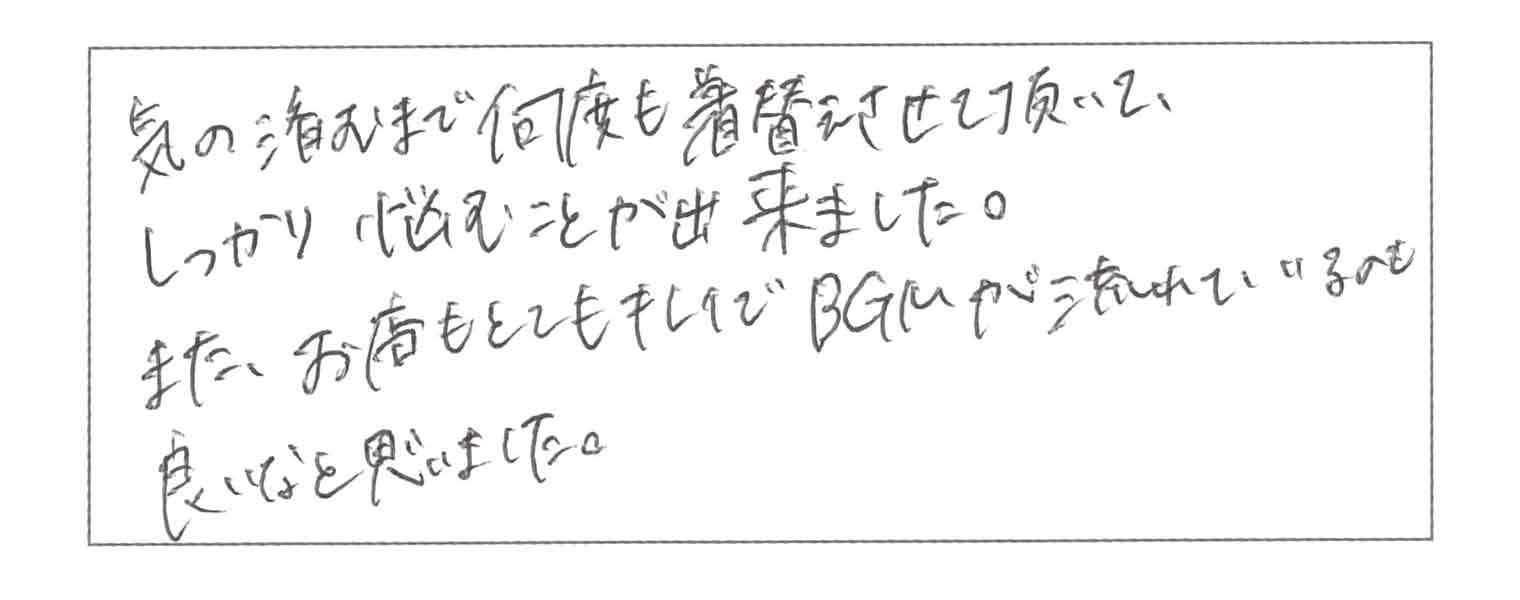 気の済むまで何度も着替えさせて頂いて、
しっかり悩むことが出来ました。
また、お店もとてもキレイでBGMが流れているのも
良いなと思いました。